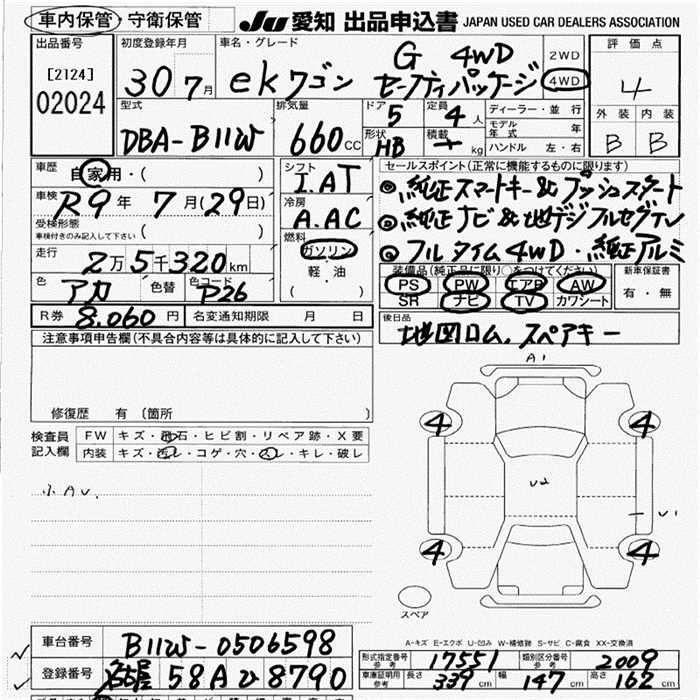 車内保管・守衛保管 Ju 愛知 出品申込書 JAPAN USED CAR DEALERS ASSOCIATION
出品番号 初度登録年月 車名・グレード 評価点
[2124] 30 7月 ekワゴン G 4WD 2WD
02024 セーフティパッケージ 4WD 4
型式 排気量 ドア 5 定員 4人 ディーラー・並行 外装 内装
DBA-B11W 660cc 形状 HB 積載 kg モデル年式 年 B B
ハンドル 左・右
車歴 自家用・( ) シフト I.AT セールスポイント(正常に機能するものに限ります)
車検 R9年 7月(29日) 冷房 A.AC ◎純正スマートキー&プッシュスタート
受検形態 ( ) ◎純正ナビ&地デジフルセグTV
車検付きのみ記入して下さい 燃料 ガソリン ◎フルタイム4WD・純正アルミ
走行 2万5千320km 軽・油 装備品(純正品に限り○をつけてください) 新車保証書
色 アカ 色替 色コード P26 ( ) PS PW エアB AW 有・無
SR ナビ TV カワシート
R券 8.060円 名変通知期限 月 日 後日品
地図ロム、スペアキー
注意事項申告欄(不具合内容等は具体的に記入して下さい)
A1
修復歴 有 〔箇所 〕
検査員 FW キズ・飛石・ヒビ割・リペア跡・X要
記入欄 内装 キズ・汚レ・コゲ・穴・スレ・キレ・破レ
4 4
U2
小AU. U1
4 4
スペア
A-キズ E-エクボ U-凹み W-補修跡 S-サビ C-腐食 XX-交換済
車台番号 B11W-0506598
形式指定番号 参考 17551 類別区分番号 参考 2009
登録番号 名古屋 58A ひ 8790
車庫証明用 参考 長さ 339cm 幅 147cm 高さ 162cm